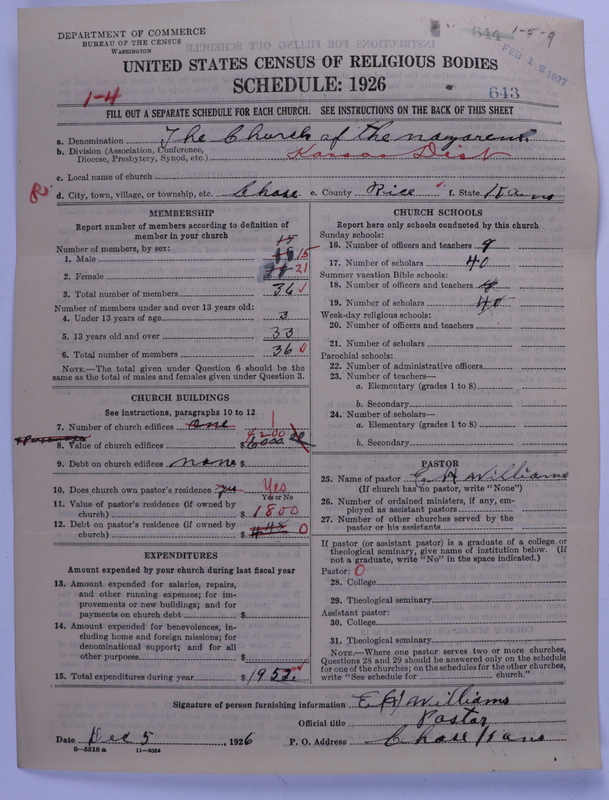 DEPARTMENT OF COMMERCE
BUREAU OF THE CENSUS
WASHINGTON
644 1-5-9
FEB 12 1927
UNITED STATES CENSUS OF RELIGIOUS BODIES
SCHEDULE: 1926
1-4
643
FILL OUT A SEPARATE SCHEDULE FOR EACH CHURCH. SEE INSTRUCTIONS ON THE BACK OF THIS SHEET
a. Denomination The Church of the nazarene
b. Division (Association, Conference, Diocese, Presbytery, Synod, etc.) Kansas Dist
c. Local name of church
R.
d. City, town, village, or township, etc. Chase e. County Rice f. State Kans
MEMBERSHIP
Report number of members according to definition of
member in your church
Number of members, by sex:
15
1. Male 15
2. Female 21
3. Total number of members 36
Number of members under and over 13 years old:
4. Under 13 years of age 3
5. 13 years old and over 33
6. Total number of members 36
NOTE.—The total given under Question 6 should be the
same as the total of males and females given under Question 3.
CHURCH BUILDINGS
See instructions, paragraphs 10 to 12
7. Number of church edifices one 1
8. Value of church edifices $6000 4200
9. Debt on church edifices none $
10. Does church own pastor's residence yes Yes
Yes or No
11. Value of pastor's residence (if owned by
church) $ 1800
12. Debt on pastor's residence (if owned by
church) $ 0
EXPENDITURES
Amount expended by your church during last fiscal year
13. Amount expended for salaries, repairs,
and other running expenses; for im-
provements or new buildings; and for
payments on church debt $
14. Amount expended for benevolences, in-
cluding home and foreign missions; for
denominational support; and for all
other purposes $
15. Total expenditures during year $ 1952.
CHURCH SCHOOLS
Report here only schools conducted by this church
Sunday schools:
16. Number of officers and teachers 9
17. Number of scholars 40
Summer vacation Bible schools:
18. Number of officers and teachers 9
19. Number of scholars 40
Week-day religious schools:
20. Number of officers and teachers
21. Number of scholars
Parochial schools:
22. Number of administrative officers
23. Number of teachers—
a. Elementary (grades 1 to 8)
b. Secondary
24. Number of scholars—
a. Elementary (grades 1 to 8)
b. Secondary
PASTOR
25. Name of pastor E H Williams
(If church has no pastor, write "None")
26. Number of ordained ministers, if any, em-
ployed as assistant pastors
27. Number of other churches served by the
pastor or his assistants
If pastor (or assistant pastor) is a graduate of a college or
theological seminary, give name of institution below. (If
not a graduate, write "No" in the space indicated.)
Pastor: 0
28. College
29. Theological seminary
Assistant pastor:
30. College
31. Theological seminary
NOTE.—Where one pastor serves two or more churches,
Questions 28 and 29 should be answered only on the schedule
for one of the churches; on the schedules for the other churches,
write "See schedule for church."
Signature of person furnishing information E H Williams
Official title Pastor
Date Dec 5, 1926 P. O. Address Chase Kans
8-5518 a 11-9034